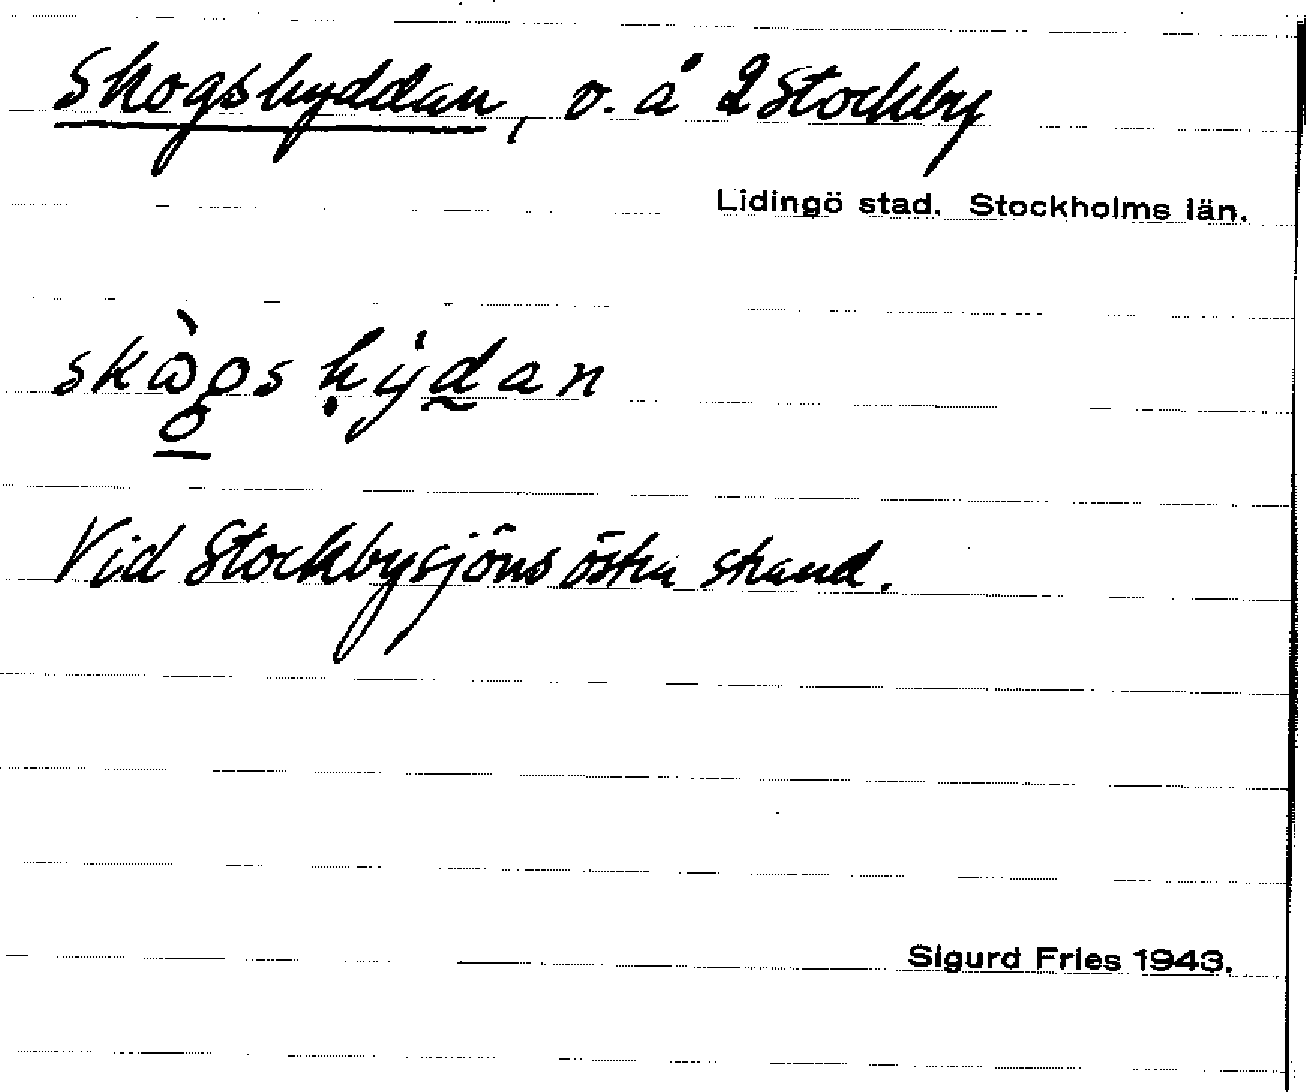 Skogshyddan, v. å 2 Stockby
Lidingö stad. Stockholms län.
skògs hẏdan
Vid Stockbysjöns östra strand.
Sigurd Fries 1943.